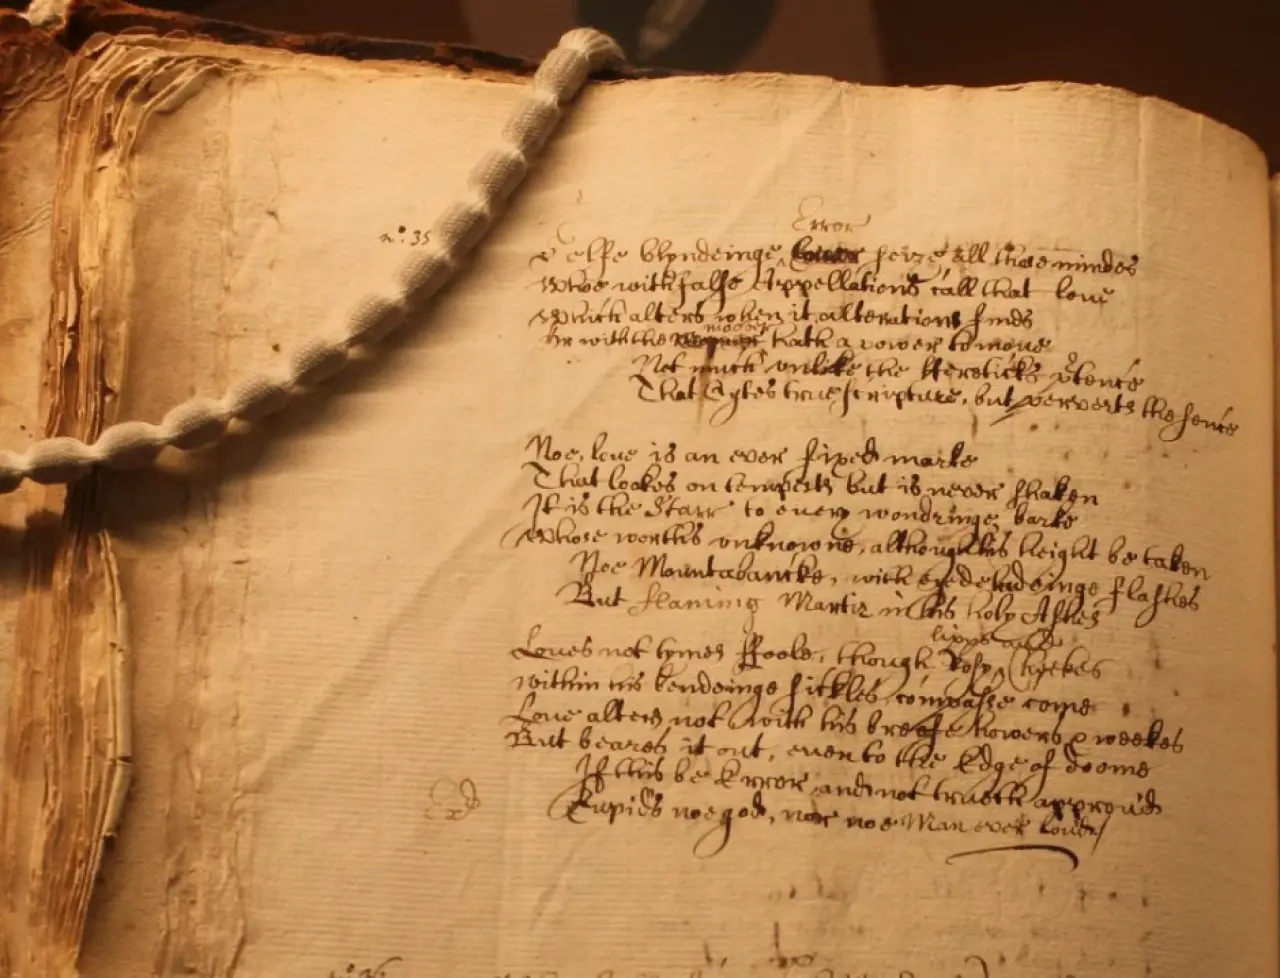 Error
n°. 35
Selfe blyndeinge seize all those mindes
Who with false Appellations call that love
Which alters when it alterations finds
mover
Or with the hath a power to move
Not much unlike the Hereticks p'tence
That Cytes true scripture, but perverts the sence
Noe, love is an ever fixed marke
That lookes on tempests but is never shaken
It is the Starr to every wondringe barke
Whose worth's unknowne, although his height be taken
Noe Mountabancke, with eye deludeinge flashes
But flaming Martir in his holy Ashes
lipps and
Loves not tymes Foole, though Rosy Cheekes
within his bendeinge sickles compasse come
Love alters not with his breife howers & weekes
But beares it out, even to the Edge of doome
If this be Error and not trueth approv'd
Cupids noe god, nor noe Man ever lov'd